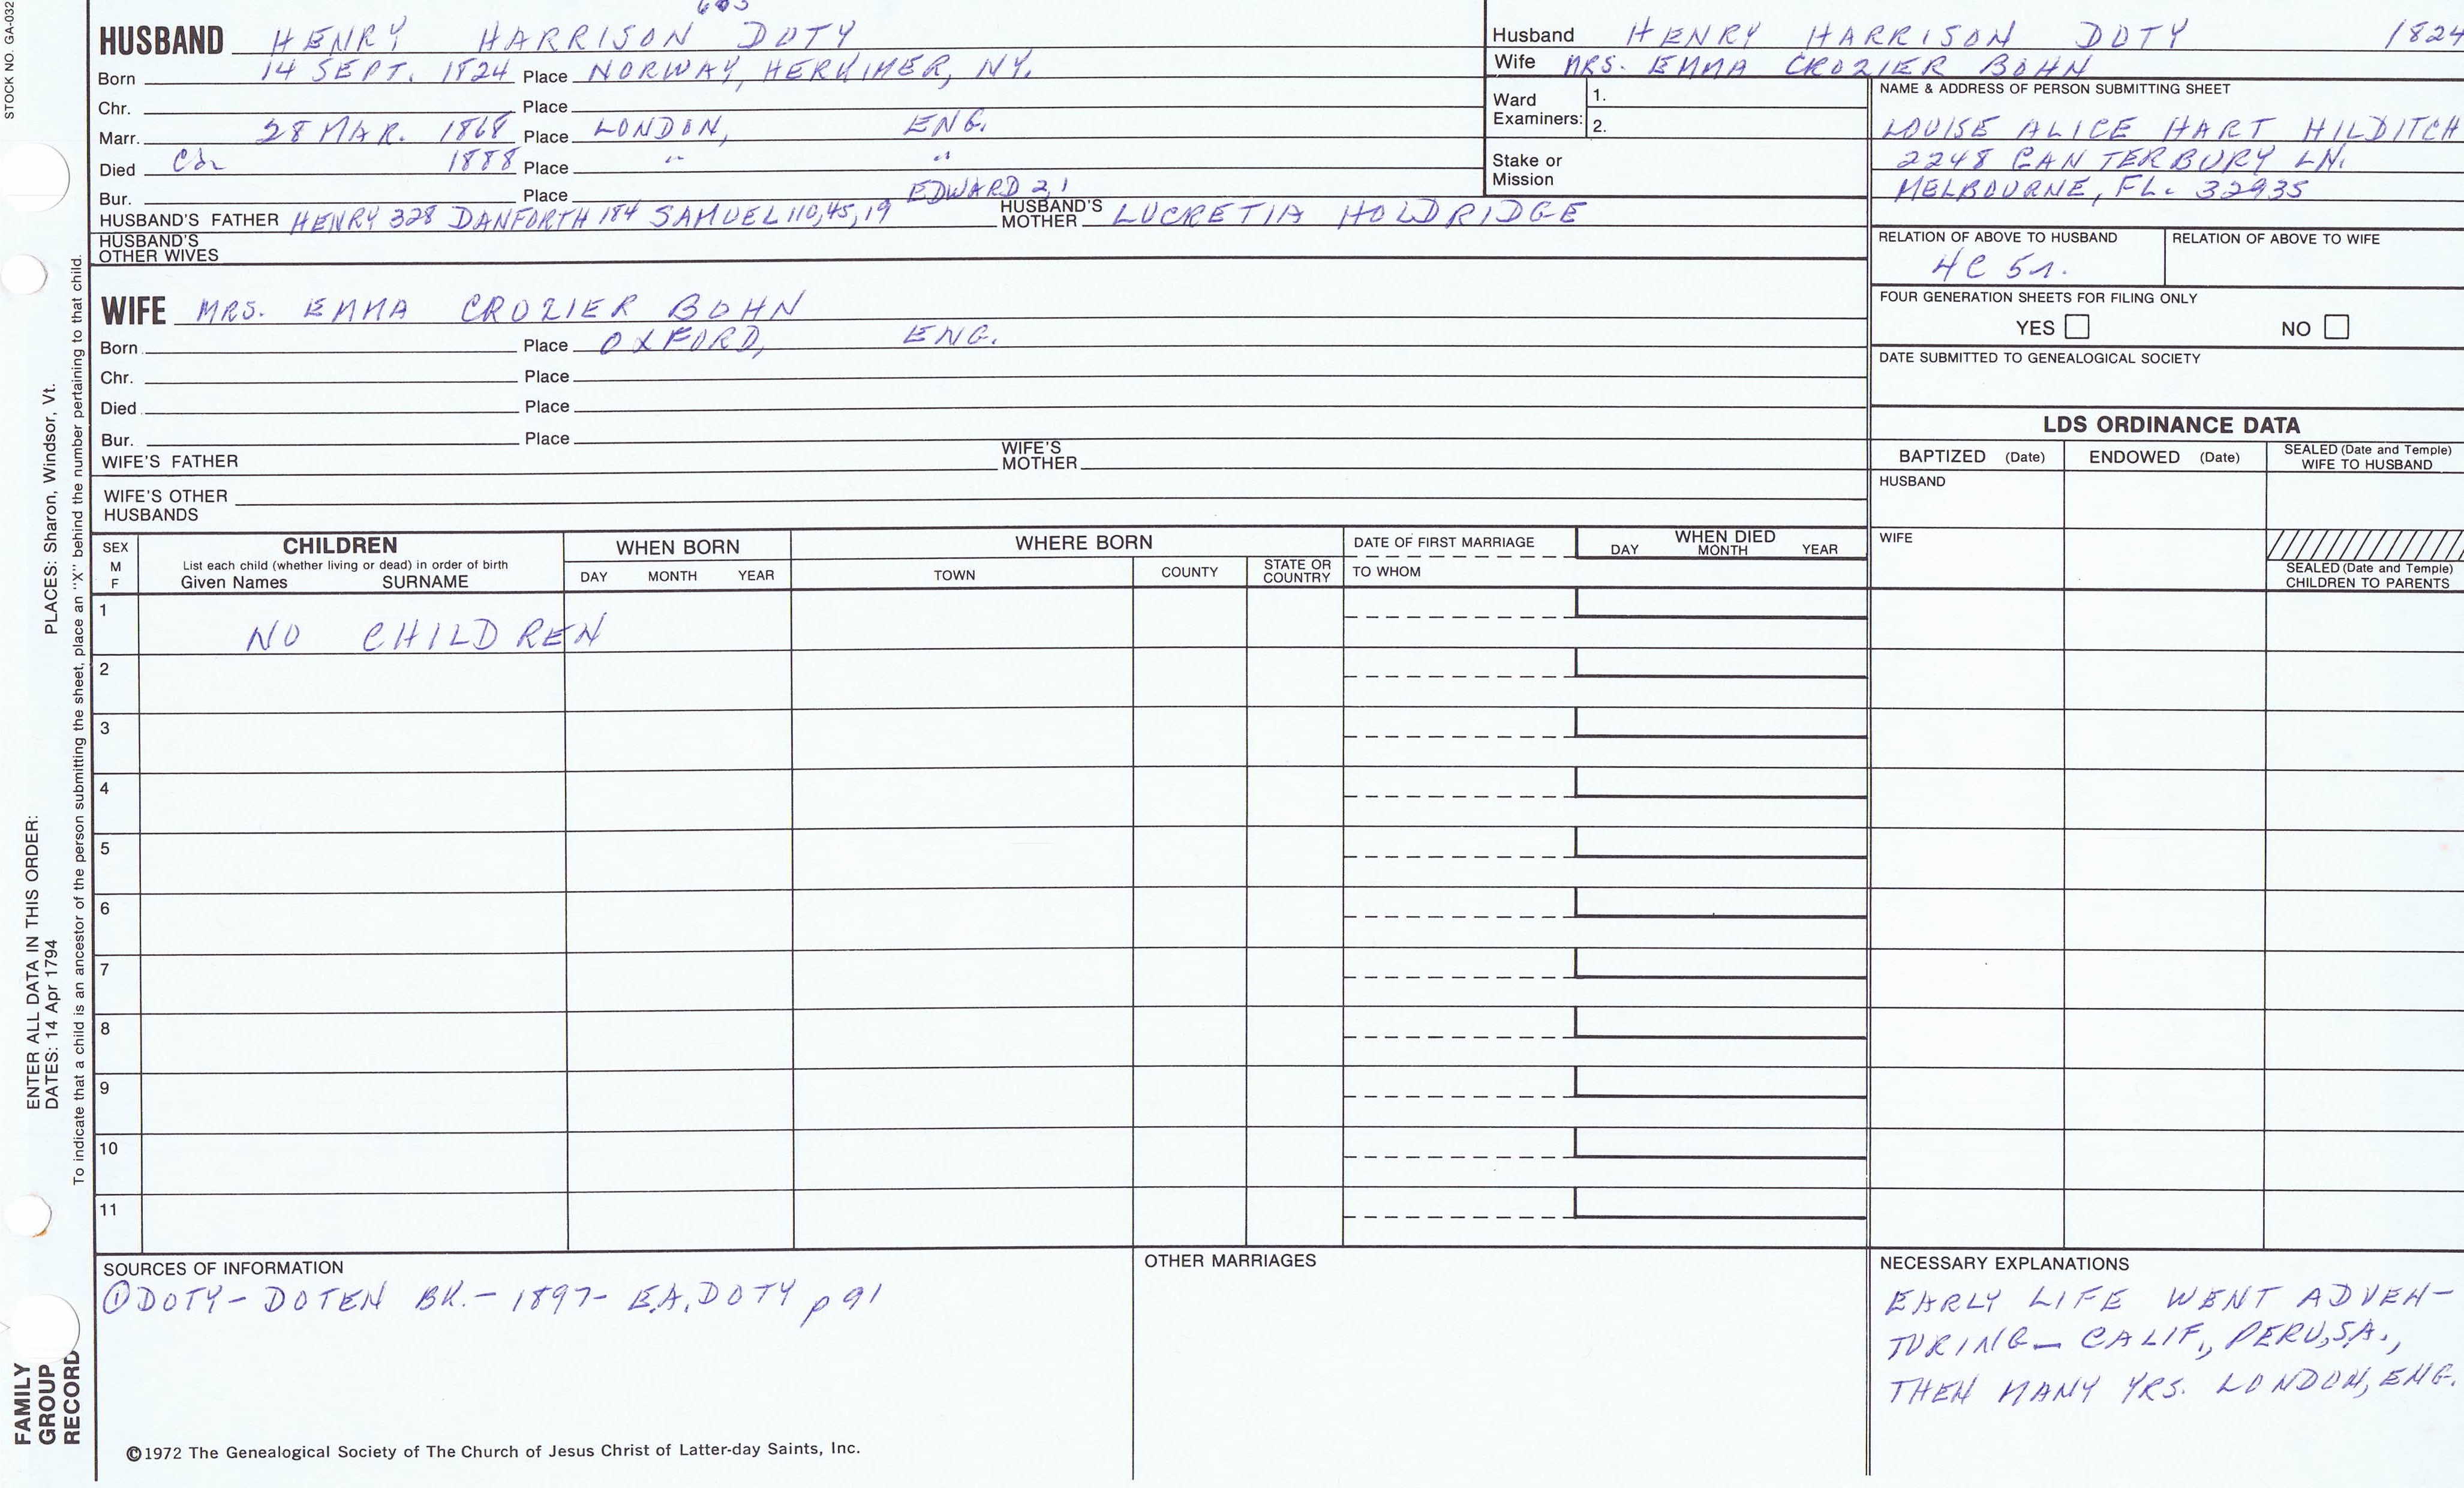 STOCK NO. GA-032
PLACES: Sharon, Windsor, Vt.
ENTER ALL DATA IN THIS ORDER:
DATES: 14 Apr 1794
To indicate that a child is an ancestor of the person submitting the sheet, place an "X" behind the number pertaining to that child.
FAMILY
GROUP
RECORD
HUSBAND HENRY HARRISON DOTY
Born 14 SEPT. 1824 Place NORWAY, HERKIMER, NY.
Chr. Place
Marr. 28 MAR. 1868 Place LONDON, ENG.
Died 1888 Place " "
Bur. Place
EDWARD 2,1
HUSBAND'S FATHER HENRY 328 DANFORTH 184 SAMUEL 110,45,19 HUSBAND'S MOTHER LUCRETIA HOLDRIDGE
HUSBAND'S
OTHER WIVES
WIFE MRS. EMMA CROZIER BOHN
Born Place OXFORD, ENG.
Chr. Place
Died Place
Bur. Place
WIFE'S FATHER WIFE'S MOTHER
WIFE'S OTHER
HUSBANDS
Husband HENRY HARRISON DOTY 1824
Wife MRS. EMMA CROZIER BOHN
Ward
Examiners: 1.
2.
Stake or
Mission
NAME & ADDRESS OF PERSON SUBMITTING SHEET
LOUISE ALICE HART HILDITCH
2248 CANTERBURY LN.
MELBOURNE, FL. 32935
RELATION OF ABOVE TO HUSBAND RELATION OF ABOVE TO WIFE
4C 5r.
FOUR GENERATION SHEETS FOR FILING ONLY
YES NO
DATE SUBMITTED TO GENEALOGICAL SOCIETY
LDS ORDINANCE DATA
BAPTIZED (Date) ENDOWED (Date) SEALED (Date and Temple)
WIFE TO HUSBAND
HUSBAND
WIFE
SEALED (Date and Temple)
CHILDREN TO PARENTS
SEX
M
F
CHILDREN
List each child (whether living or dead) in order of birth
Given Names SURNAME
WHEN BORN
DAY MONTH YEAR
WHERE BORN
TOWN COUNTY STATE OR
COUNTRY
DATE OF FIRST MARRIAGE
TO WHOM
WHEN DIED
DAY MONTH YEAR
1 NO CHILDREN
2
3
4
5
6
7
8
9
10
11
SOURCES OF INFORMATION
① DOTY-DOTEN BK.-1897- E.A. DOTY p 91
©1972 The Genealogical Society of The Church of Jesus Christ of Latter-day Saints, Inc.
OTHER MARRIAGES
NECESSARY EXPLANATIONS
EARLY LIFE WENT ADVEN-
TURING- CALIF., PERU, S.A.,
THEN MANY YRS. LONDON, ENG.